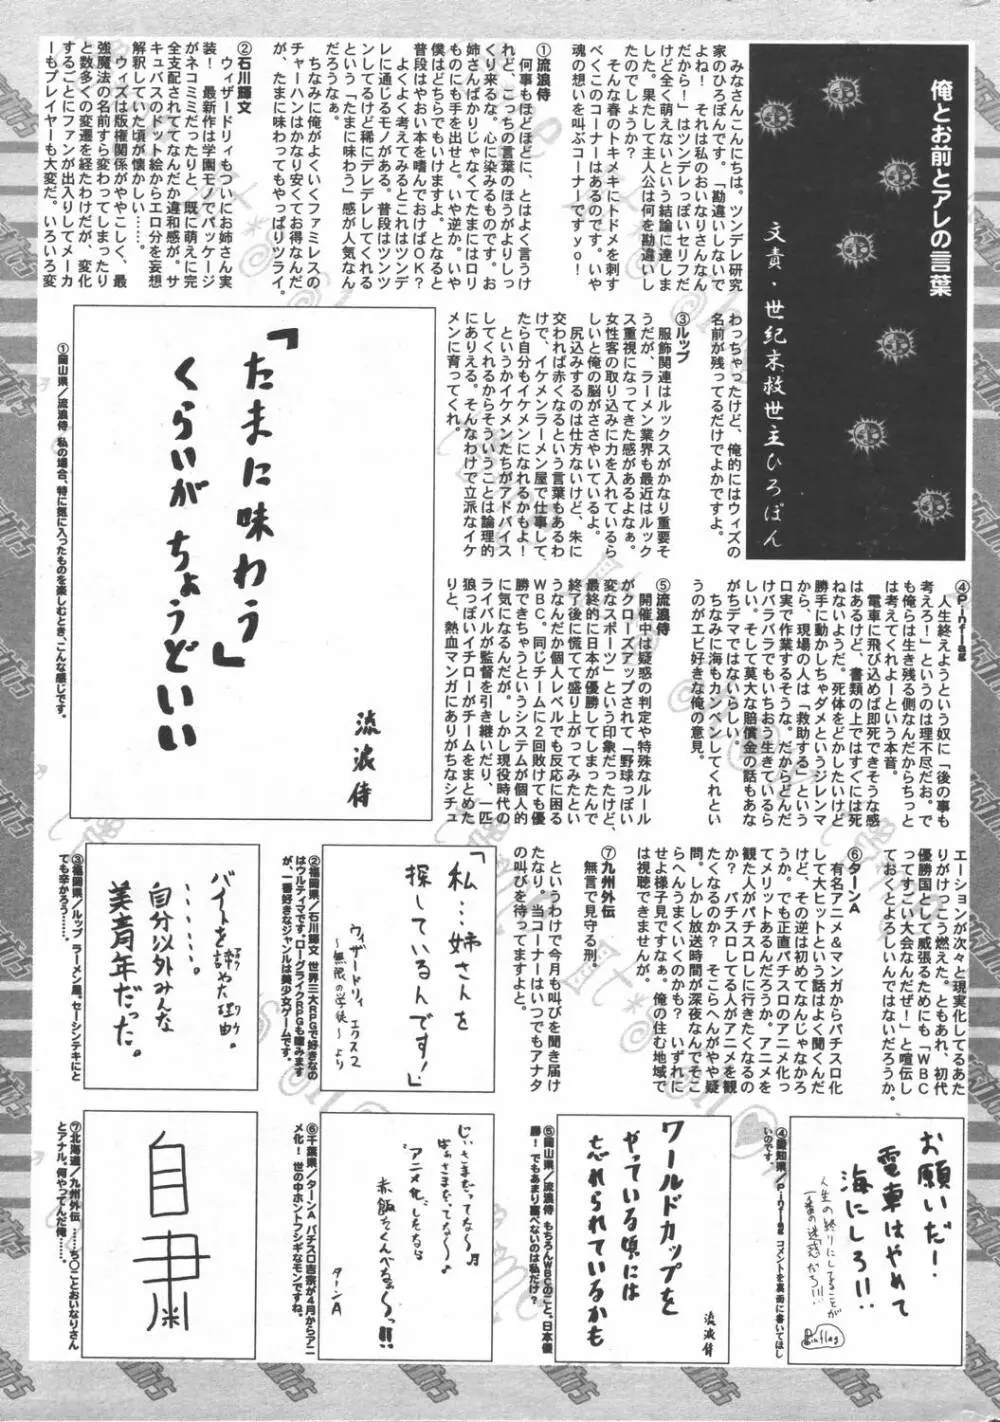 俺とお前とアレの言葉
文責・世紀末救世主ひろぽん
みなさんこんにちは。ツンデレ研究
家のひろぽんです。「勘違いしないで
よね! それは私のおいなりさんなん
だから!」はツンデレっぽいセリフだ
けど全く萌えないという結論に達しま
した。果たして主人公は何を勘違いし
たのでしょうか?
そんな春のトキメキにトドメを刺す
べくこのコーナーはあるのです。いや
魂の想いを叫ぶコーナーですyo!
①流浪侍
何事もほどほどに、とはよく言うけ
れど、こっちの言葉のほうがよりしっ
くり来るな。心に染みるものです。お
姉さんばかりじゃなくてたまにはロリ
ものにも手を出せと。いや逆か。いや
僕はどちらでもいけますよ。となると
普段はやおい本を嗜んでおけばOK?
よくよく考えてみるとこれはツンデ
レに通じるモノがある。普段はツンツ
ンしてるけど稀にデレデレしてくれる
という「たまに味わう」感が人気なん
だろうなぁ。
ちなみに俺がよくいくファミレスの
チャーハンはかなり安くてお得なんだ
が、たまに味わってもやっぱりツライ。
②石川輝文
ウィザードリィもついにお姉さん実
装! 最新作は学園モノでパッケージ
がネコミミだったりと、既に萌えに完
全支配されててなんだか違和感が。サ
キュバスのドット絵からエロ分を妄想
解釈していた頃が懐かしい……。
ウィズは版権関係がややこしく、最
強魔法の名前すら変わってしまったり
と数多くの変遷を経たわけだが、変化
するごとにファンが出入りしてメーカ
ーもプレイヤーも大変だ。いろいろ変
わっちゃったけど、俺的にはウィズの
名前が残ってるだけでよかですよ。
③ルップ
服飾関連はルックスがかなり重要そ
うだが、ラーメン業界も最近はルック
ス重視になってきた感があるよなぁ。
女性客の取り込みに力を入れているら
しいと俺の脳がささやいているよ。
尻込みするのは仕方ないけど、朱に
交われば赤くなるという言葉もあるわ
けで、イケメンラーメン屋で仕事して
たら自分もイケメンになれるかもよ!
というかイケメンたちがアドバイス
してくれるからそういうことは論理的
にありえる。そんなわけで立派なイケ
メンに育ってくれ。
④Pinflag
人生終えようという奴に「後の事も
考えろ!」というのは理不尽だお。で
も俺らは生き残る側なんだからちっと
は考えてくれよーという本音。
電車に飛び込めば即死できそうな感
はあるけど、書類の上ではすぐには死
ねないようだ。死体をどかしたいけど
勝手に動かしちゃダメというジレンマ
から、現場の人は「救助する」という
口実で作業するそうな。だからどんだ
けバラバラでもいちおう生きているら
しい。そして莫大な賠償金の話もあな
がちデマではないらしい。
ちなみに海もカンベンしてくれとい
うのがエビ好きな俺の意見。
⑤流浪侍
開催中は疑惑の判定や特殊なルール
がクローズアップされて「野球っぽい
変なスポーツ」という印象だったけど、
最終的に日本が優勝してしまったんで
終了後に慌てて盛り上がってみたとい
うなんだか個人レベルでも反応に困る
WBC。同じチームに2回敗けても優
勝できちゃうというシステムが個人的
に気になるんだが。しかし現役時代の
ライバルが監督を引き継いだり、一匹
狼っぽいイチローがチームをまとめた
りと、熱血マンガにありがちなシチュ
エーションが次々と現実化してるあた
りがけっこう燃えた。ともあれ、初代
優勝国として威張るためにも「WBC
ってすごい大会なんだぜ!」と喧伝し
ておくとよろしいんではないだろうか。
⑥ターンA
有名アニメ&マンガからパチスロ化
して大ヒットという話はよく聞くんだ
けど、その逆は初めてなんじゃなかろ
うか。でも正直パチスロのアニメ化っ
てメリットあるんだろうか。アニメを
観た人がパチスロしに行きたくなるの
か? パチスロしてる人がアニメを観
たくなるのか? そこらへんがやや疑
問。しかし放送時間が深夜なんでそこ
らへんうまくいくのかも? いずれに
せよ様子見ですなぁ。俺の住む地域で
は視聴できませんが。
⑦九州外伝
無言で見守る刑。
というわけで今月も叫びを聞き届け
たなり。当コーナーはいつでもアナタ
の叫びを待ってますよと。
「たまに味わう」
くらいが ちょうどいい
流浪侍
①岡山県/流浪侍 私の場合、特に気に入ったものを楽しむとき、こんな感じです。
「私……姉さんを
探しているんです!」
ウィザードリィ エクス2
〜無限の学徒〜より
②福岡県/石川輝文 世界三大RPGで好きなの
はウルティマです。ローグライクRPGも嗜みます
が、一番好きなジャンルは美少女ゲームです。
バイトを辞めた理由。
……。
自分以外みんな
美青年だった。
③福岡県/ルップ ラーメン屋。セーシンテキにと
ても辛かろう……。
お願いだー!
電車はやめて
海にしろ!!
人生の終りにしてることが
一番の迷惑だろ!!!
Pinflag
④愛知県/Pinflag コメントを裏面に書いてほし
いのです。
ワールドカップを
やっている頃には
忘れられているかも
流浪侍
⑤岡山県/流浪侍 もちろんWBCのこと。日本優
勝! でもあまり喜べないのは私だけ?
じいさまだってな〜月
ばぁさまだってな〜♪
“アニメ化”したなら
赤飯さくんべなぁ〜っ!!
ターンA
⑥千葉県/ターンA パチスロ吉宗が4月からアニ
メ化! 世の中ホントフシギなモンですね。
自粛
⑦北海道/九州外伝 ……ち○ことおいなりさん
とアナル。何やってんだ俺……。